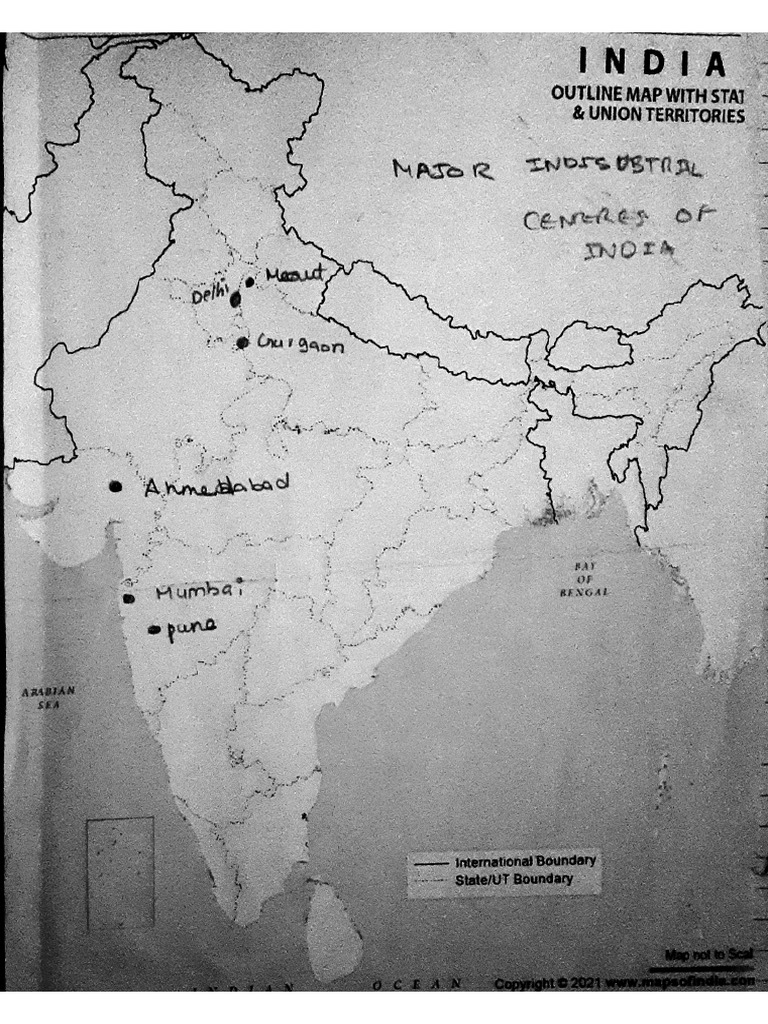 INDIA
OUTLINE MAP WITH STAT
& UNION TERRITORIES
MAJOR INDISUBTRIAL
CENTRES OF
INDIA
Meerut
Delhi
Gurgaon
Ahmedabad
Mumbai
pune
BAY
OF
BENGAL
ARABIAN
SEA
International Boundary
State/UT Boundary
Map not to Scal
INDIAN OCEAN
Copyright © 2021 www.mapsofindia.com